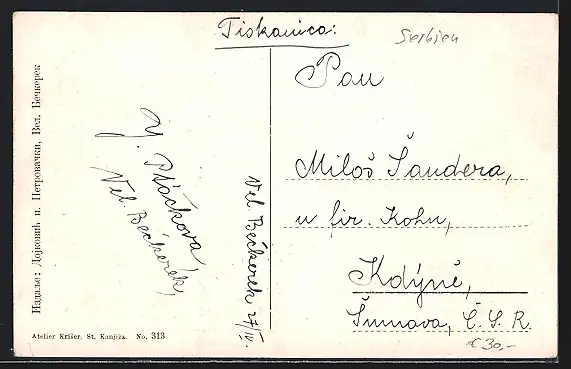 Tiskanica:
Serbien
Pan
Miloš Šandera,
u fir. Kohn,
Kdýně,
Šumava, Č. S. R.
€ 30,-
Y. Ptáčková
Vel. Bečkerek,
Vel. Bečkerek 27/IV.
Издање: Дојковић и Петровачки, Вел. Бечкерек
Atelier Krišer, St. Kanjiža. No. 313